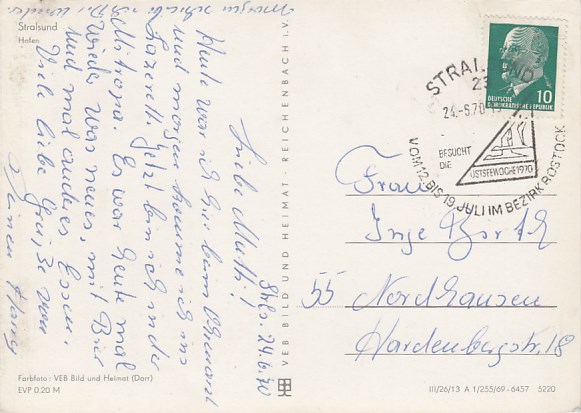 Stralsund
Hafen
Morgen schreibe ich Dir wieder.
Strls. 24.6.70
Liebe Mutti!
Heute war ich hier beim
und morgen komme ich ins
Lazarett. Jetzt bin ich in der
Mitropa. Es war heute mal
wieder was neues, mit Bier
und mal anderes Essen.
Viele liebe Grüße von
Deinem
Farbfoto: VEB Bild und Heimat (Darr)
EVP 0.20 M
VEB BILD UND HEIMAT REICHENBACH i. V.
STRALSUND
24.-6.70
BESUCHT
DIE
OSTSEEWOCHE 1970
VOM 12. BIS 19. JULI IM BEZIRK ROSTOCK
DEUTSCHE
DEMOKRATISCHE REPUBLIK
10
Frau
Inge
55 Nordhausen
Hardenbergstr. 18
III/26/13 A 1/255/69-6457 5220